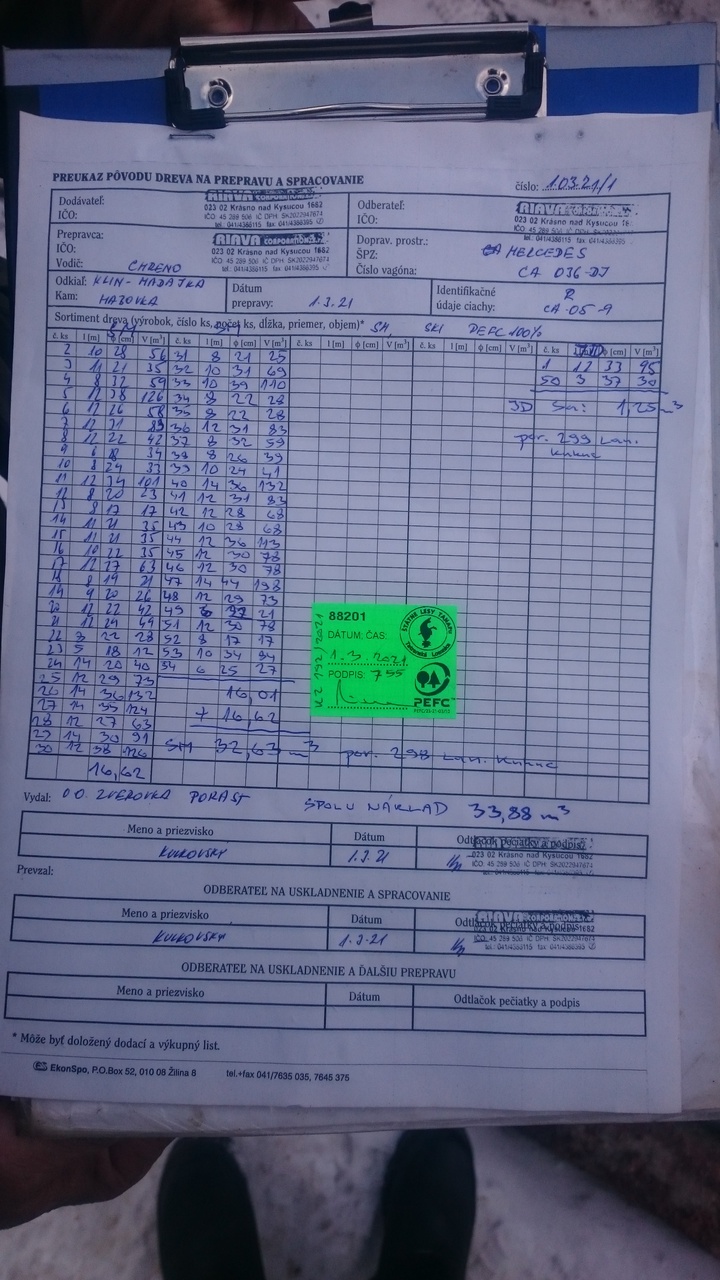 PREUKAZ PÔVODU DREVA NA PREPRAVU A SPRACOVANIE
číslo: 10321/1
Dodávateľ:
IČO:
023 02 Krásno nad Kysucou 1682
Odberateľ:
IČO:
023 02 Krásno nad Kysucou 1682
Prepravca:
IČO:
Vodič: CHRENO
RIAVA CORPORATION
023 02 Krásno nad Kysucou 1682
Doprav. prostr.: MERCEDES
ŠPZ:
Číslo vagóna: CA 036-DJ
Odkiaľ: KLIN-
Kam:
Dátum
prepravy: 1.3.21
Identifikačné
údaje ciachy: CA-05-9
Sortiment dreva (výrobok, číslo ks, počet ks, dĺžka, priemer, objem)* SM, SKI PEFC 100%
č. ks l [m] ϕ [cm] V [m³] č. ks l [m] ϕ [cm] V [m³] č. ks l [m] ϕ [cm] V [m³] č. ks l [m] ϕ [cm] V [m³] č. ks ϕ [cm] V [m³]
2 10 28 56 31 8 21 25
1 12 33 95
3 11 21 35 32 10 31 69
50 3 37 30
4 8 32 59 33 10 39 110
5 12 38 126 34 8 22 28
JD Sa: 1,25 m³
6 12 26 58 35 8 22 28
7 12 31 83 36 12 31 83
8 12 22 42 37 8 32 59
por. 299
9 34 38 8 26 39
10 8 24 33 39 10 24 41
11 12 34 101 40 14 36 132
12 8 20 23 41 12 31 83
13 8 17 17 42 12 28 68
14 11 21 35 43 10 28 68
15 11 21 35 44 12 36 113
16 10 22 35 45 12 30 78
17 12 27 63 46 12 30 78
18 8 19 21 47 14 44 198
19 9 20 26 48 12 29 73
20 12 22 42 49 21
21 12 24 49 51 12 30 78
22 3 22 28 52 8 17 17
23 5 18 12 53 10 34 84
24 14 20 40 54 6 25 27
25 12 29 73
26 14 36 132 16,01
27 14 35 124 + 16,62
28 12 27 63
29 14 30 91 SM 32,63 m³ por. 298
30 12 38 126
16,62
88201
DÁTUM: ČAS:
1.3.2021
PODPIS: 7 55
ŠTÁTNE LESY TANAPU
PEFC
Vydal: O.O. ZVEROVKA PORAST SPOLU NÁKLAD 33,88 m³
Meno a priezvisko Dátum Odtlačok pečiatky a podpis
KULKOVSKY 1.3.21
023 02 Krásno nad Kysucou 1682
Prevzal:
ODBERATEĽ NA USKLADNENIE A SPRACOVANIE
Meno a priezvisko Dátum Odtlačok pečiatky a podpis
KULKOVSKY 1.3.21
023 02 Krásno nad Kysucou 1682
ODBERATEĽ NA USKLADNENIE A ĎALŠIU PREPRAVU
Meno a priezvisko Dátum Odtlačok pečiatky a podpis
* Môže byť doložený dodací a výkupný list.
EkonSpo, P.O.Box 52, 010 08 Žilina 8 tel.+fax 041/7635 035, 7645 375